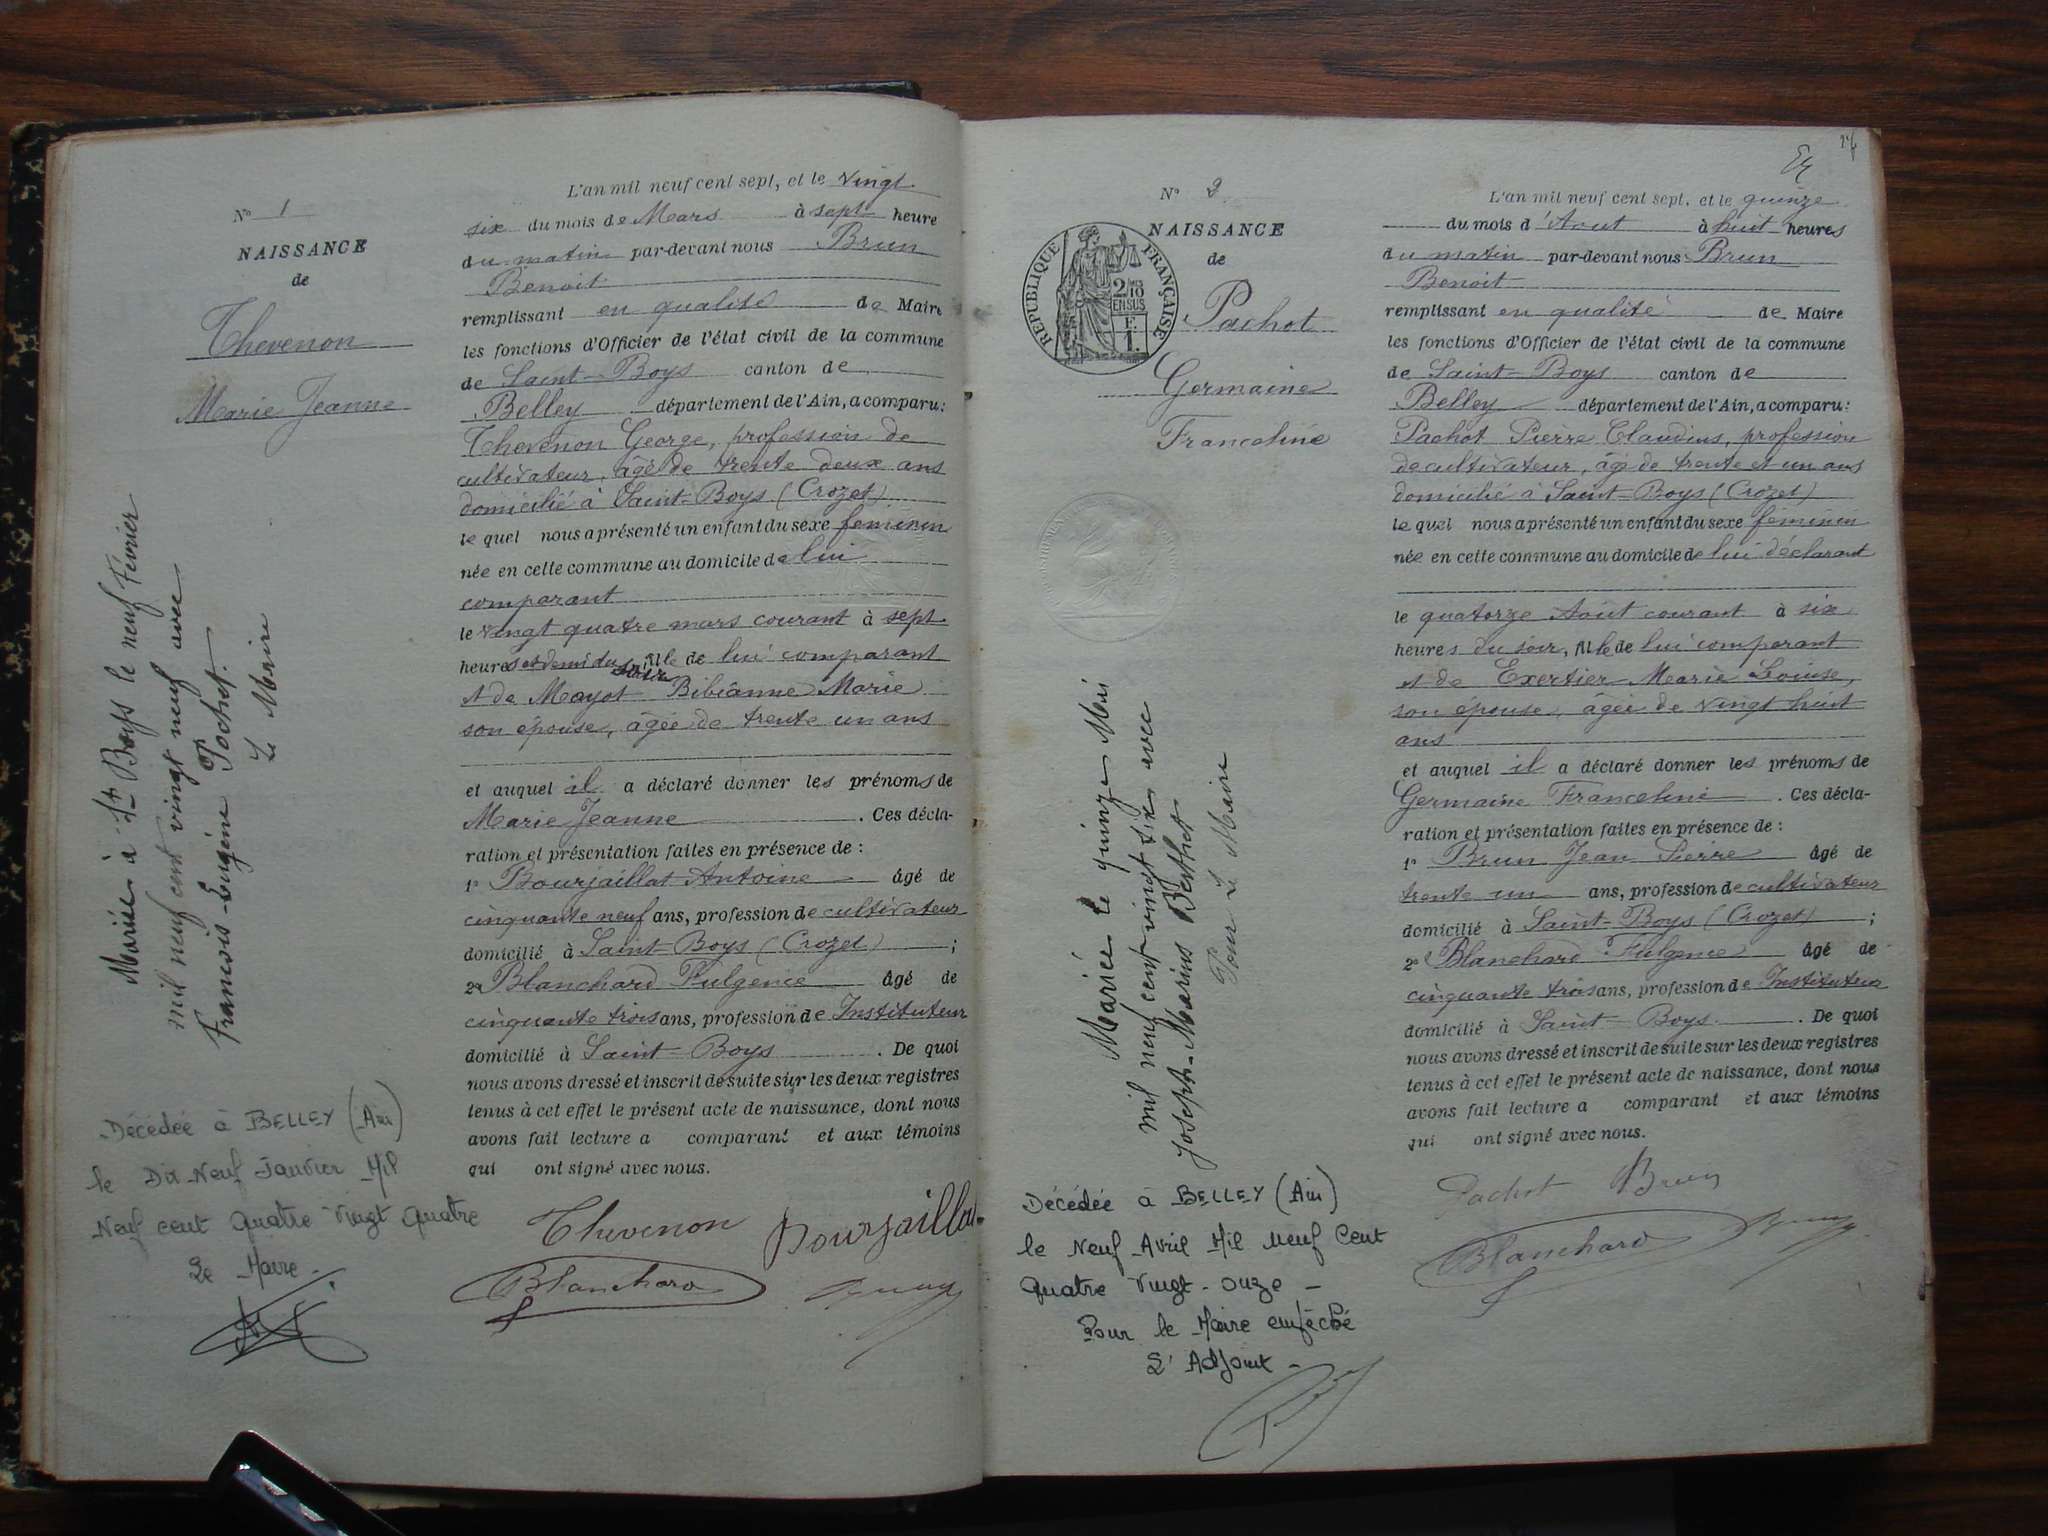 N° 1
NAISSANCE
de
Thevenon
Marie Jeanne
Mariée à St Boys le neuf Février
mil neuf cent vingt neuf avec
François-Eugène Pochet.
Le Maire
Décédée à BELLEY (Ain)
le Dix-Neuf Janvier Mil
Neuf cent Quatre Vingt Quatre
Le Maire
L'an mil neuf cent sept, et le vingt
six du mois de Mars à sept heure
du matin par-devant nous Brun
Benoit
remplissant en qualité de Maire
les fonctions d'Officier de l'état civil de la commune
de Saint-Boys canton de
Belley département de l'Ain, a comparu:
Thevenon George, profession de
cultivateur, âgé de trente deux ans
domicilié à Saint-Boys (Crozet)
le quel nous a présenté un enfant du sexe feminin
née en cette commune au domicile de lui
comparant
le vingt quatre mars courant à sept
heures et demi du soir, fille de lui comparant
et de Mayot Bibianne Marie
son épouse, âgée de trente un ans
et auquel il a déclaré donner les prénoms de
Marie Jeanne. Ces décla-
ration et présentation faites en présence de :
1° Bourjaillat Antoine âgé de
cinquante neuf ans, profession de cultivateur
domicilié à Saint-Boys (Crozet) ;
2° Blanchard Fulgence âgé de
cinquante trois ans, profession de Instituteur
domicilié à Saint-Boys. De quoi
nous avons dressé et inscrit de suite sur les deux registres
tenus à cet effet le présent acte de naissance, dont nous
avons fait lecture a comparant et aux témoins
qui ont signé avec nous.
Thevenon Bourjaillat
Blanchard Brun
N° 2
NAISSANCE
de
RÉPUBLIQUE FRANÇAISE
2/10
EN SUS
F.
1.
Pachot
Germaine
Franceline
Mariée le quinze Mai
mil neuf cent vingt six avec
Joseph-Marius Berthet
Pour Le Maire
Décédée à BELLEY (Ain)
le Neuf Avril Mil Neuf Cent
Quatre Vingt-Onze -
Pour le Maire empêché
L'Adjoint -
L'an mil neuf cent sept, et le quinze
du mois d'Aout à huit heures
du matin par-devant nous Brun
Benoit
remplissant en qualité de Maire
les fonctions d'Officier de l'état civil de la commune
de Saint-Boys canton de
Belley département de l'Ain, a comparu:
Pachot Pierre Claudius, profession
de cultivateur, âgé de trente et un ans
domicilié à Saint-Boys (Crozet)
le quel nous a présenté un enfant du sexe féminin
née en cette commune au domicile de lui déclarant
le quatorze Aout courant à six
heures du soir, fille de lui comparant
et de Exertier Marie Louise,
son épouse, âgée de vingt huit
ans
et auquel il a déclaré donner les prénoms de
Germaine Franceline. Ces décla-
ration et présentation faites en présence de :
1° Brun Jean Pierre âgé de
trente un ans, profession de cultivateur
domicilié à Saint-Boys (Crozet) ;
2° Blanchard Fulgence âgé de
cinquante trois ans, profession de Instituteur
domicilié à Saint-Boys. De quoi
nous avons dressé et inscrit de suite sur les deux registres
tenus à cet effet le présent acte de naissance, dont nous
avons fait lecture a comparant et aux témoins
qui ont signé avec nous.
Pachot Brun
Blanchard Brun